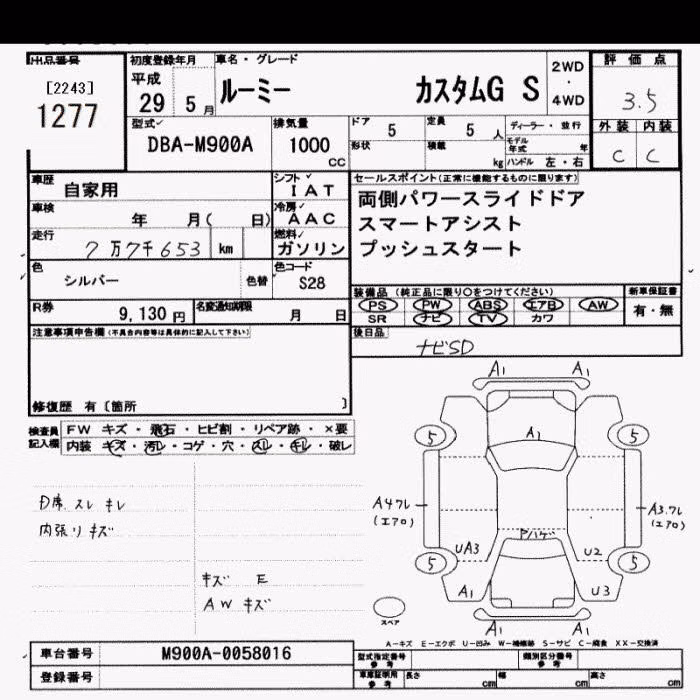 出品番号 初度登録年月 車名・グレード 評価点
[2243] 平成 ルーミー カスタムG S 2WD・4WD 3.5
1277 29 5月
型式 排気量 ドア 5 定員 5人 ディーラー・並行 外装 内装
DBA-M900A 1000cc 形状 積載 kg モデル年式 年 ハンドル 左・右 C C
車歴 自家用 シフト IAT セールスポイント(正常に機能するものに限ります)
車検 年 月( 日) 冷房 AAC 両側パワースライドドア
スマートアシスト
走行 7万7千653 km 燃料 ガソリン プッシュスタート
色 シルバー 色替 色コード S28
装備品(純正品に限り○をつけてください) 新車保証書
R券 9,130円 名変通知期限 月 日 PS PW ABS エアB AW 有・無
SR ナビ TV カワ
注意事項申告欄(不具合内容等は具体的に記入して下さい) 後日品
ナビSD
修復歴 有〔箇所 〕
検査員記入欄 FW キズ・飛石・ヒビ割・リペア跡・×要
内装 キズ・汚レ・コゲ・穴・スレ・キレ・破レ
A1 A1
5 A1 5
D席 スレ キレ
内張リ キズ
A4フレ (エアロ) A3.フレ (エアロ)
Pハゲ
UA3 U2
5 5
キズ E
AW キズ
A1 U3
スペア A1 A1
A-キズ E-エクボ U-凹み W-補修跡 S-サビ C-腐食 XX-交換済
車台番号 M900A-0058016 型式指定番号 参考 類別区分番号 参考
登録番号 車庫証明用 参考 長さ cm 幅 cm 高さ cm